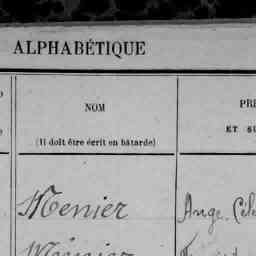 ALPHABÉTIQUE
NOM
(Il doit être écrit en bâtarde)
PRÉ
ET SU
Menier
Ange. Cél
Menier